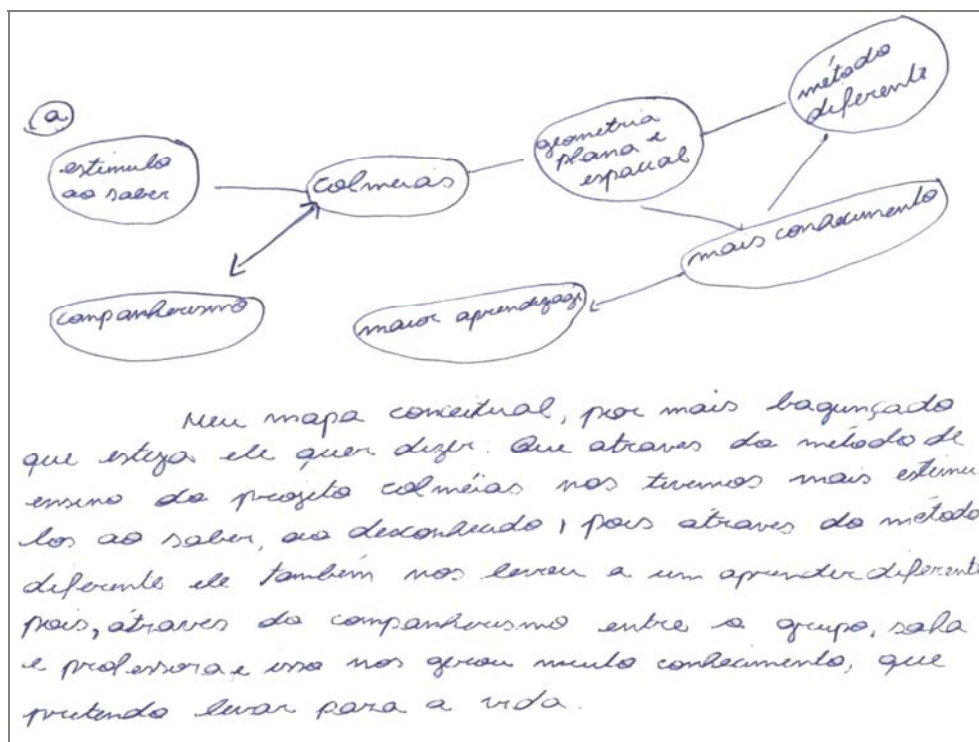 a
método
diferente
geometria
plana e
espacial
estimulo
ao saber
colmeias
mais conhecimento
companherismo
maior aprendizagi
Meu mapa conceitual, por mais bagunçado
que esteja ele quer dizer: Que atraves do método de
ensino do projeto colméias nos tivemos mais estimu
los ao saber, ao desconhecido, pois através do método
diferente ele também nos levou a um aprender diferente
pois, átraves do companherismo entre o grupo, sala
e professora e isso nos gerou muito conhecimento, que
pretendo levar para a vida.